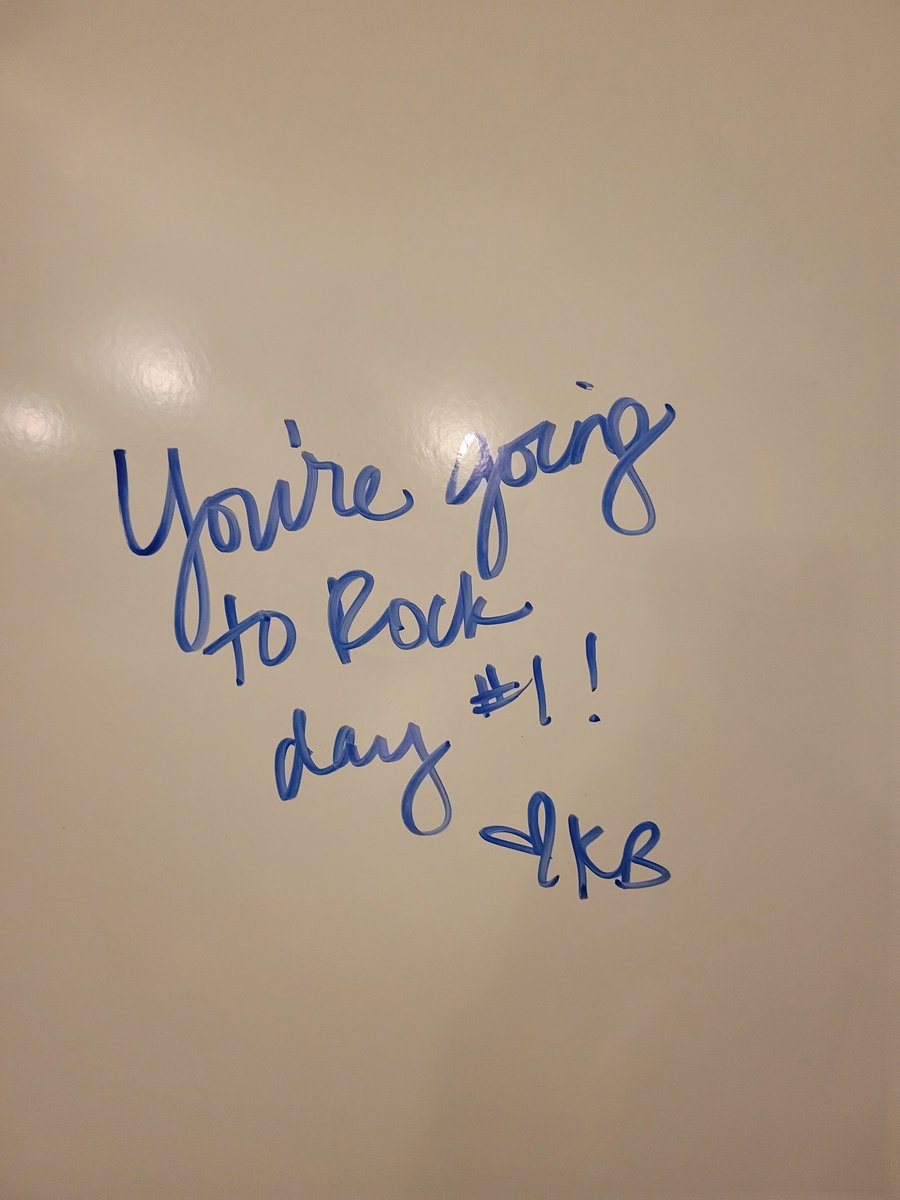 You're going
to Rock
day #1!
♡KB